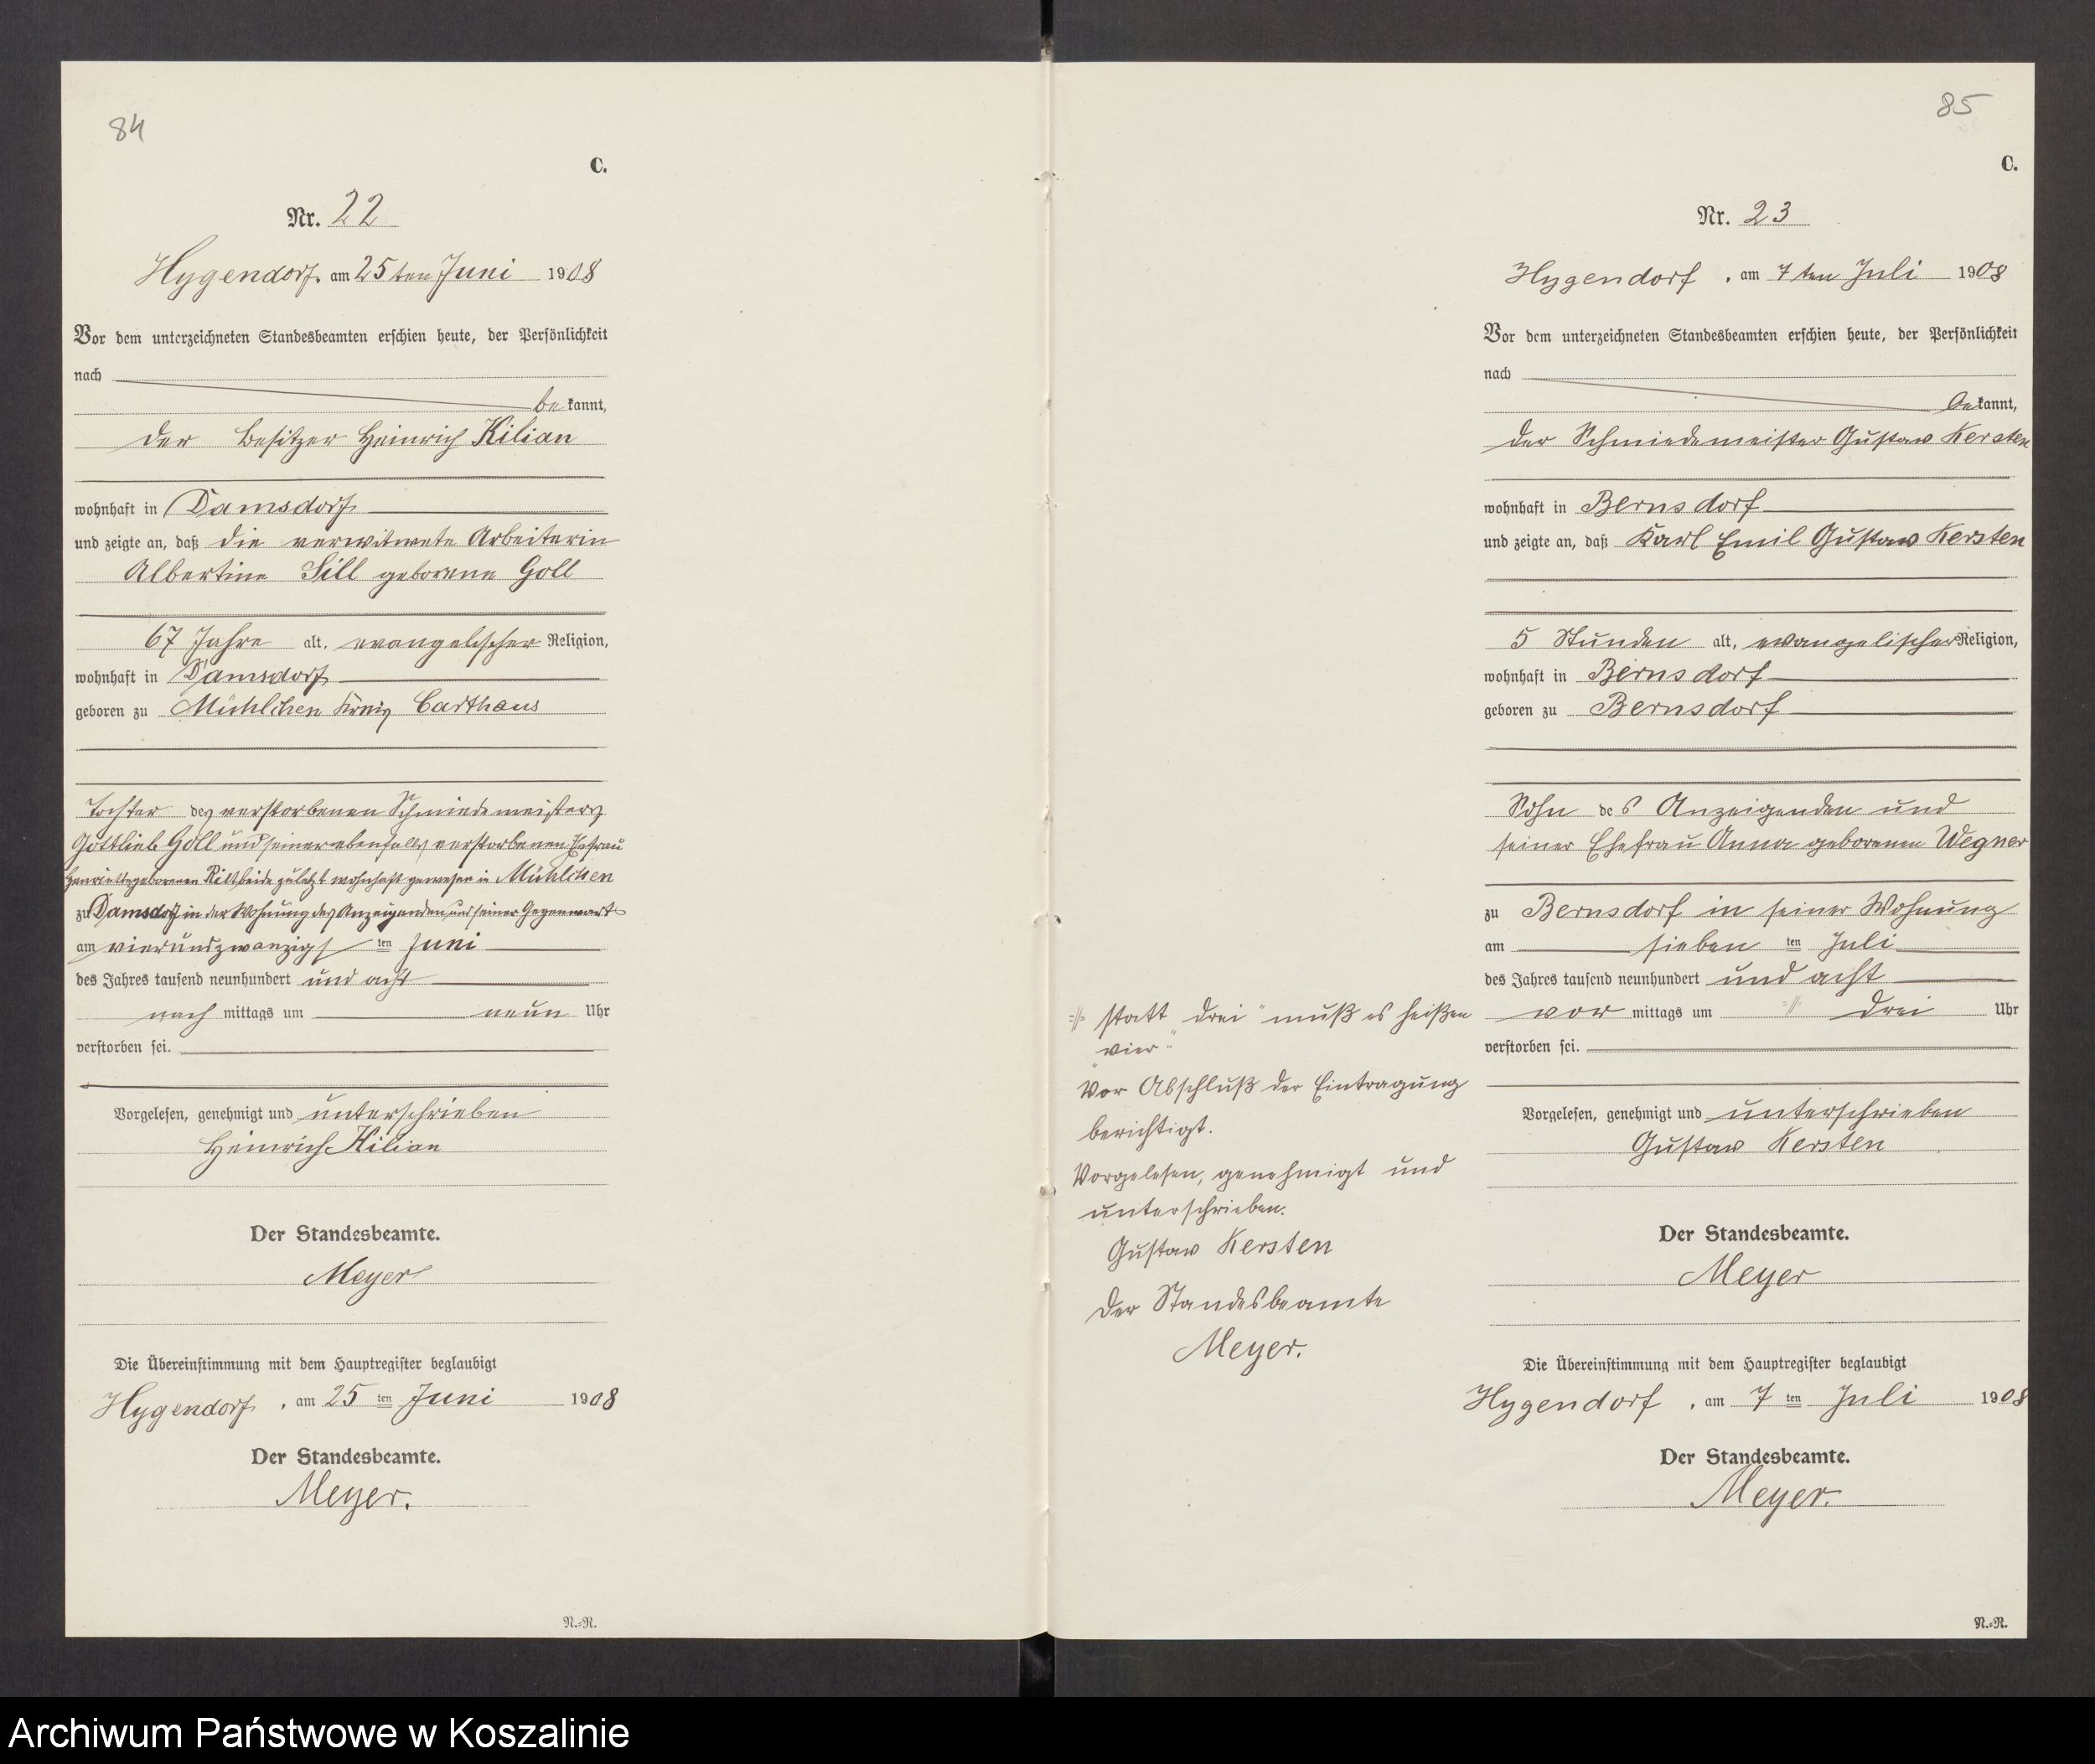 84
C.
Nr. 22
Hygendorf am 25ten Juni 1908
Vor dem unterzeichneten Standesbeamten erschien heute, der Persönlichkeit
nach
be kannt,
der Besitzer Heinrich Kilian
wohnhaft in Damsdorf
und zeigte an, daß die verwitwete Arbeiterin
Albertine Sill geborene Goll
67 Jahre alt, evangelischer Religion,
wohnhaft in Damsdorf
geboren zu Mühlchen Kreis Carthaus
Tochter des verstorbenen Schmiedemeisters
Gottlieb Goll und seiner ebenfalls verstorbenen Ehefrau
Henriette geborenen zuletzt wohnhaft gewesen in Mühlchen
zu Damsdorf in der Wohnung des Anzeigenden, und seiner Gegenwart
am vierundzwanzigs ten Juni
des Jahres tausend neunhundert und acht
nach mittags um neun Uhr
verstorben sei.
Vorgelesen, genehmigt und unterschrieben
Heinrich Kilian
Der Standesbeamte.
Meyer
Die Übereinstimmung mit dem Hauptregister beglaubigt
Hygendorf, am 25 ten Juni 1908
Der Standesbeamte.
Meyer.
N.=R.
85
C.
Nr. 23
Hygendorf, am 7ten Juli 1908
Vor dem unterzeichneten Standesbeamten erschien heute, der Persönlichkeit
nach
be kannt,
der Schmiedemeister Gustav Kersten
wohnhaft in Bernsdorf
und zeigte an, daß Karl Emil Gustav Kersten
5 Stunden alt, evangelischer Religion,
wohnhaft in Bernsdorf
geboren zu Bernsdorf
Sohn des Anzeigenden und
seiner Ehefrau Anna geborenen Wegner
zu Bernsdorf in seiner Wohnung
am sieben ten Juli
des Jahres tausend neunhundert und acht
vor mittags um =//= drei Uhr
verstorben sei.
Vorgelesen, genehmigt und unterschrieben
Gustav Kersten
Der Standesbeamte.
Meyer
Die Übereinstimmung mit dem Hauptregister beglaubigt
Hygendorf, am 7 ten Juli 1908
Der Standesbeamte.
Meyer.
N.=R.
=//= statt „drei" muß es heißen
„vier"
Vor Abschluß der Eintragung
berichtigt.
Vorgelesen, genehmigt und
unterschrieben.
Gustav Kersten
Der Standesbeamte
Meyer.
Archiwum Państwowe w Koszalinie